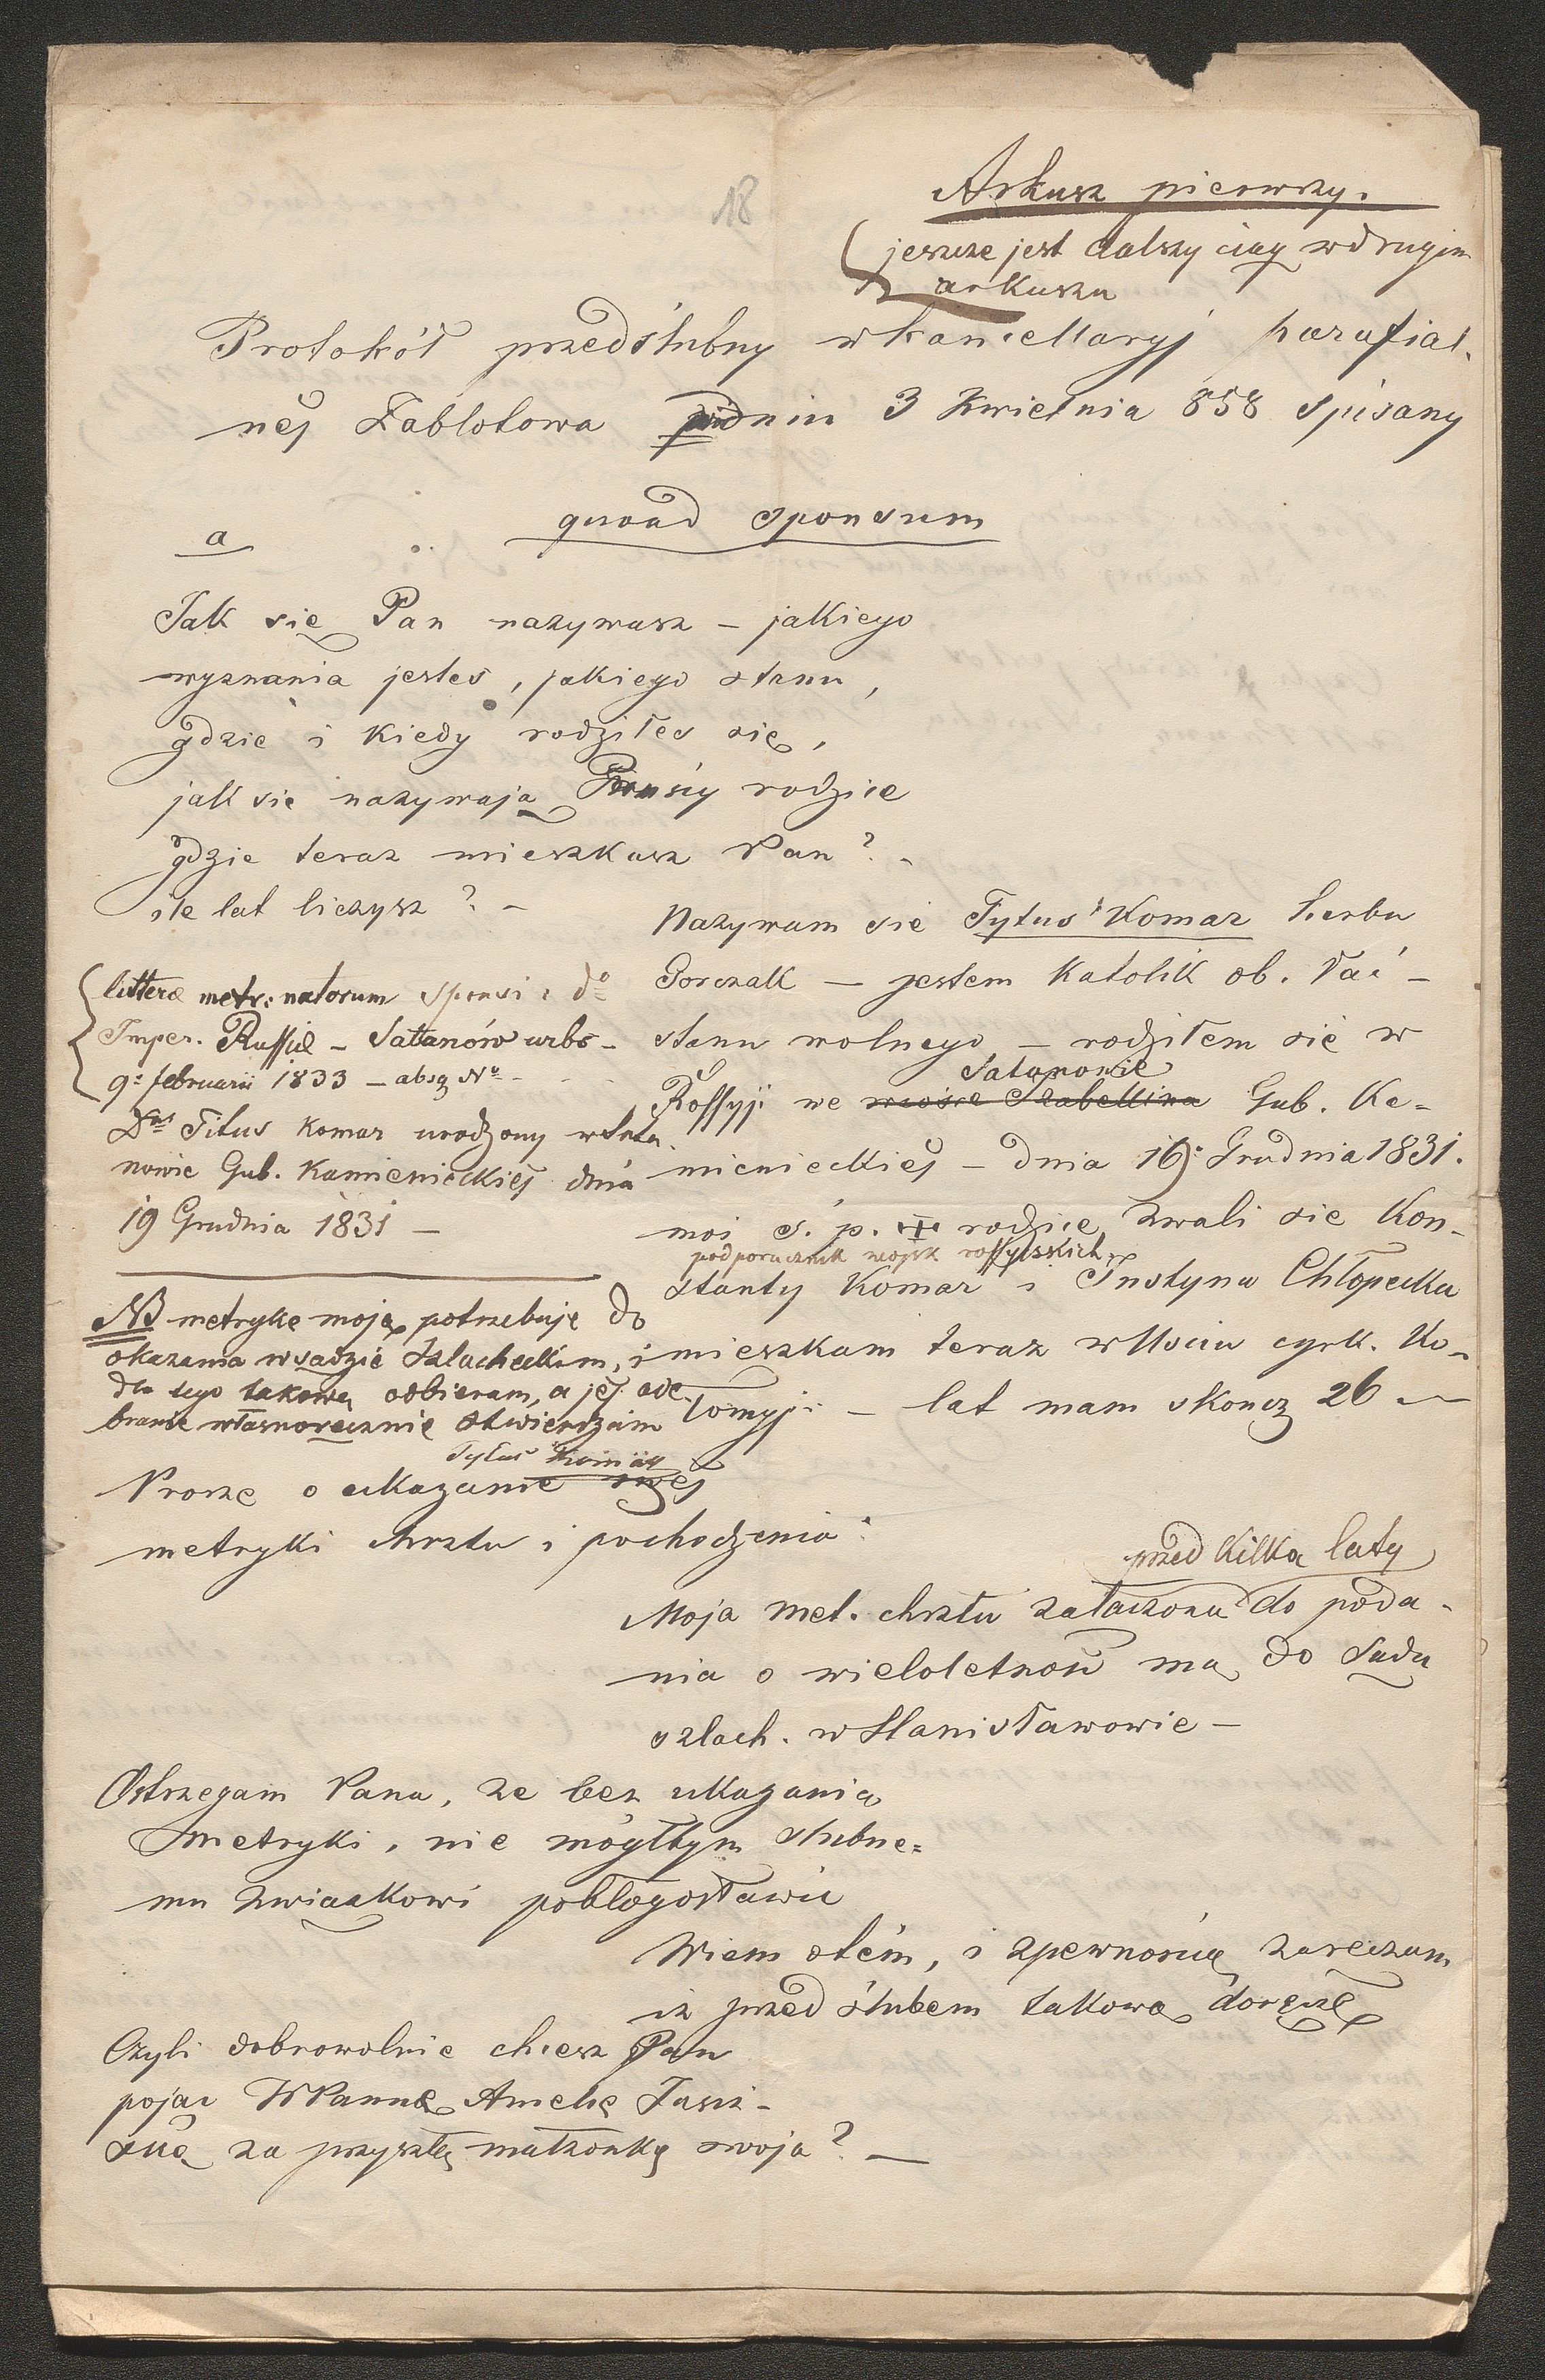 18
Arkusz pierwszy.
jeszcze jest dalszy ciąg w drugim
arkuszu
Protokół przedślubny w kancellaryj parafial.
nej Zabłotowa dnia 3 Kwietnia 858 spisany
quoad sponsum
a
Jak się Pan nazywasz – jakiego
wyznania jesteś, jakiego stanu,
gdzie i kiedy rodziłeś się,
jak się nazywają Pańscy rodzice
gdzie teraz mieszkasz Pan? –
ile lat liczysz? –
Nazywam się Tytus Komar herbu
Gorczak – jestem Katolik ob. łać –
stanu wolnego – rodziłem się w
Satanowie
Rossyji we wiosce Izabellina Gub. Ka=
mienieckiej – dnia 19: Grudnia 1831.
moi ś. p. rodzice zwali się Kon-
podporucznik wojsk rossyjskich
stanty Komar i Justyna Chłopecka
mieszkam teraz w Uściu cyrk. Ko-
łomyji – lat mam skończ 26 –
litterae metr: natorum sponsi: do
Imper. Russiae – Satanów urbs –
9: februarii 1833 – absq No – . . .
Dus Titus Komar urodzony w Sata
nowie Gub. Kamienieckiej dnia
19 Grudnia 1831 –
NB metrykę moję potrzebuję do
okazania w sądzie szlacheckim, i
dla tego takową odbieram, a jej ode
branie własnoręcznie stwierdzam
Tytus Komar
Proszę o ukazanie swej
metryki chrztu i pochodzenia:
przed kilką laty
Moja met. chrztu załączona do poda-
nia o wieloletność ma do Sądu
szlach. w Stanisławowie –
Ostrzegam Pana, że bez ukazania
metryki, nie mógłbym ślubne=
mu związkowi pobłogosławić
Wiem o tém, i z pewnością zaręczam
iż przed ślubem takową doręczę
Czyli dobrowolnie chcesz Pan
pojąć WPannę Amelię
za przyszłą małżonkę swoją? –